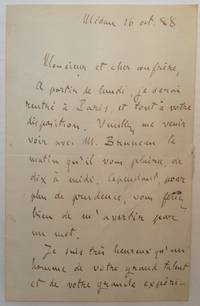 Médan 16 oct. 88
Monsieur et cher confrère,
A partir de lundi je serai
rentré à Paris et tout à votre
disposition. Veuillez me venir
voir avec M. Bruneau le
matin qu'il vous plaira, de
dix à midi. Cependant, pour
plus de prudence, vous ferez
bien de m'avertir par
un mot.
Je suis très heureux qu'un
homme de votre grand talent
et de votre grande expérie-